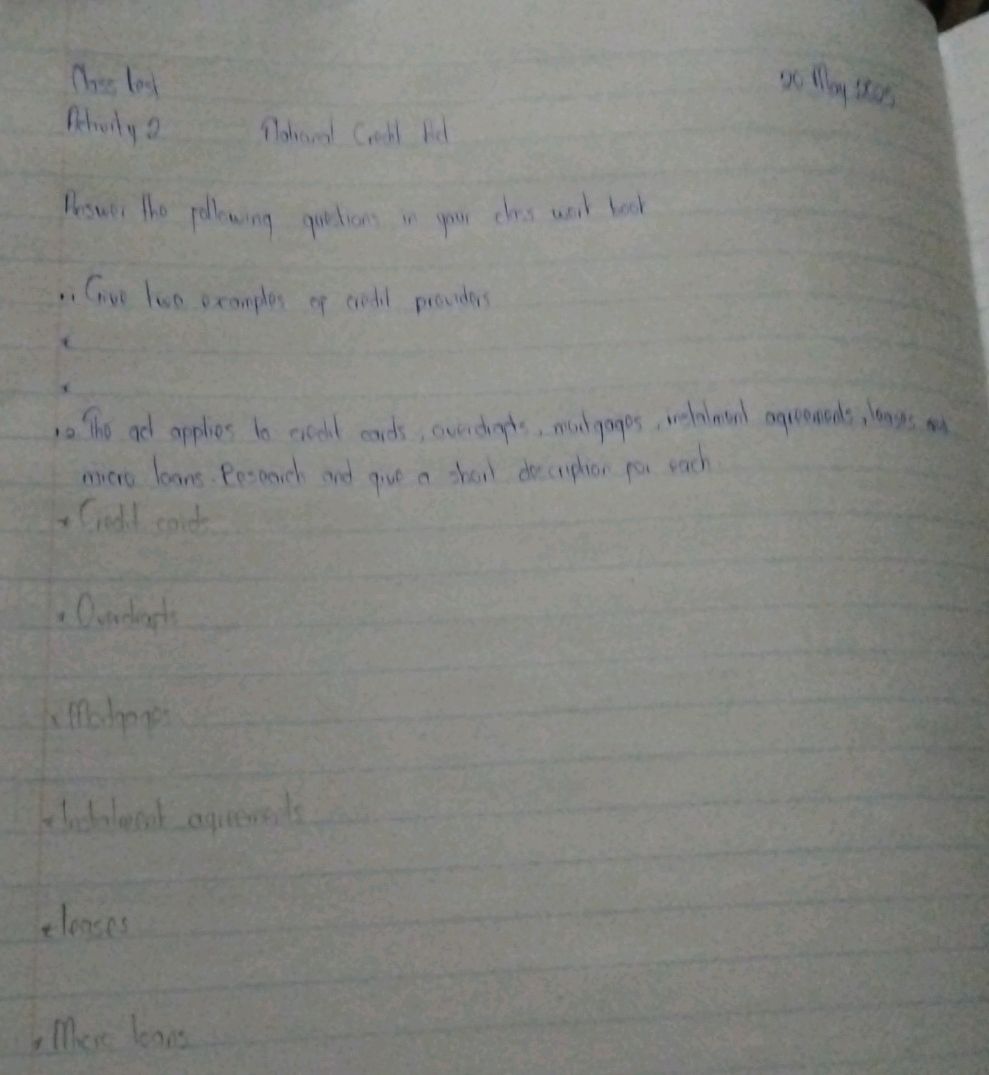 Class test
20 May 2025
Activity 2 National Credit Act
Answer the following questions in your class work book
Give two examples of credit providers
*
*
The act applies to credit cards, overdrafts, mortgages, instalment agreements, leases and
micro loans. Research and give a short description for each
* Credit cards
* Overdrafts
* Mortgages
* Instalment agreements
* leases
* Micro loans